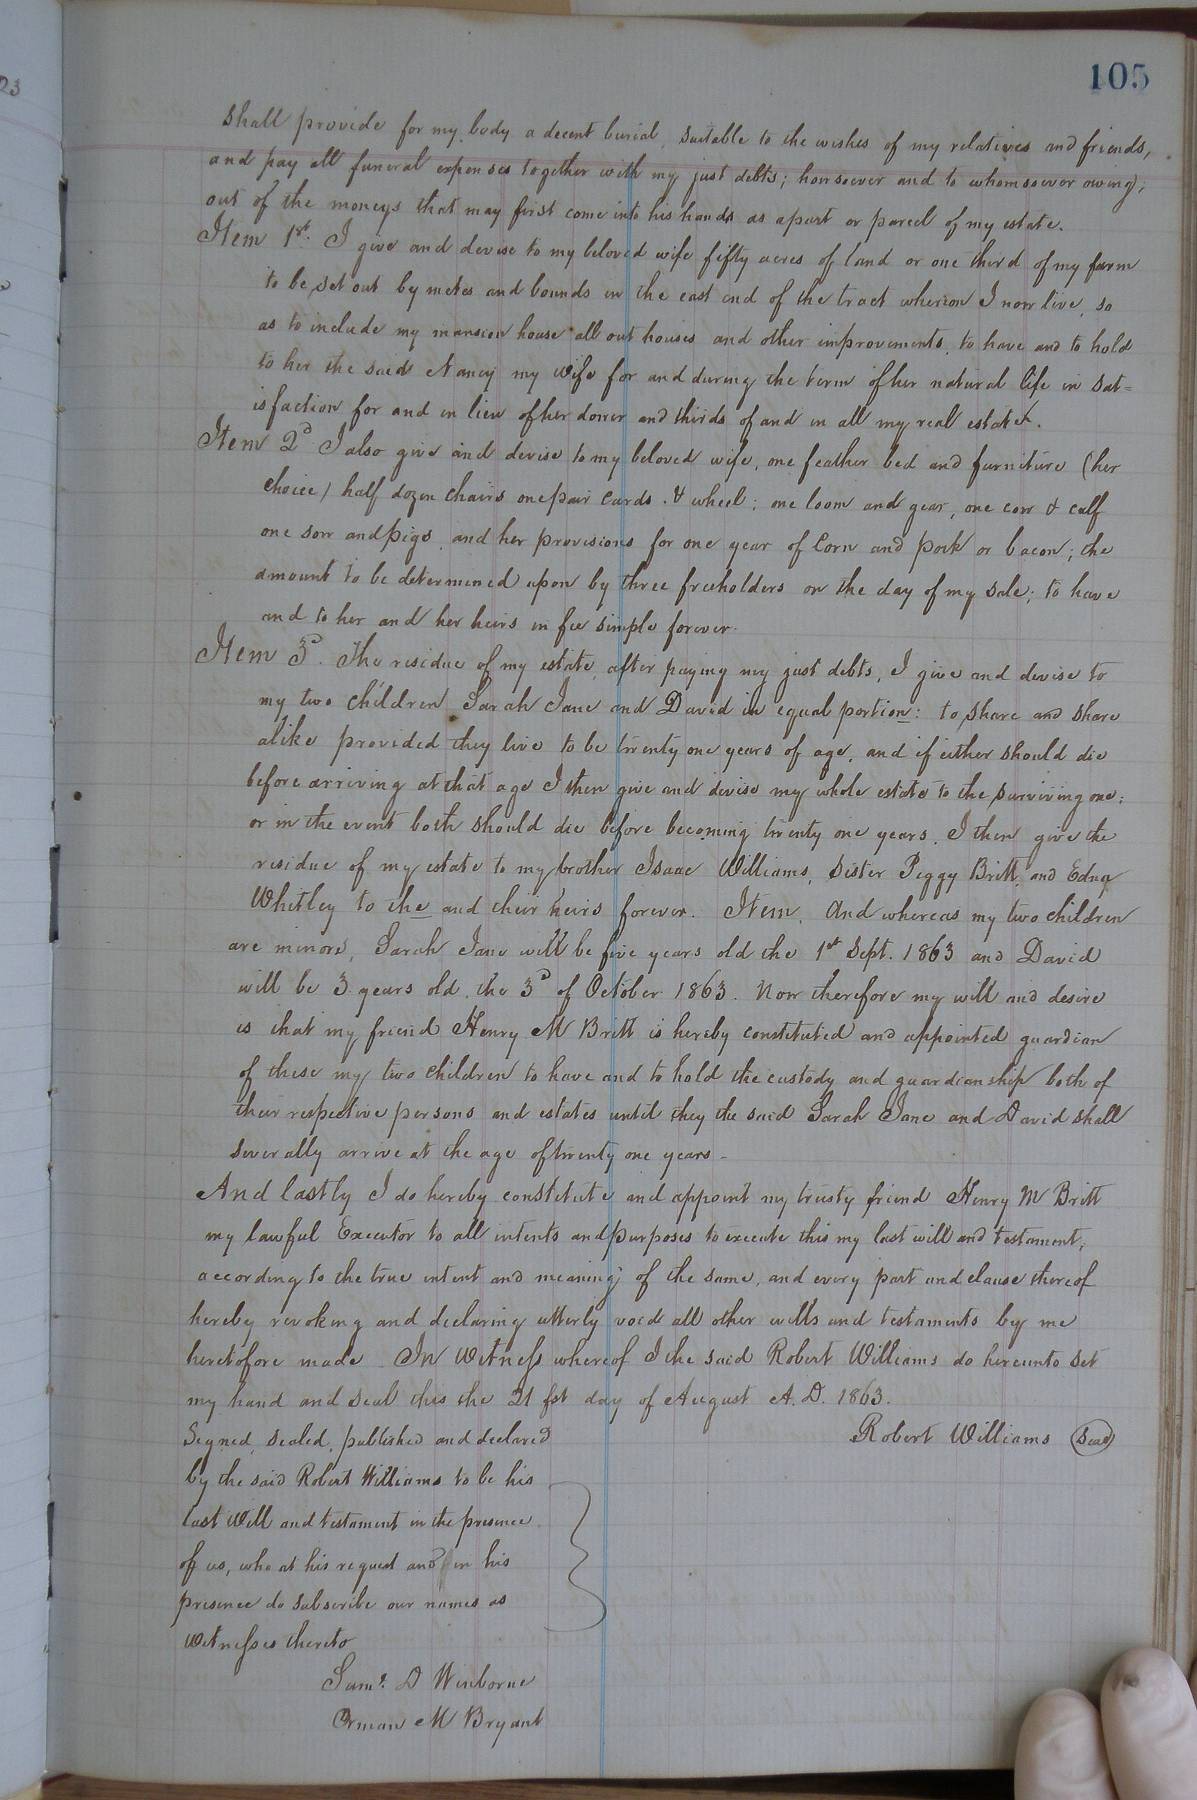 105
23
shall provide for my body a decent burial, suitable to the wishes of my relatives and friends,
and pay all funeral expenses together with my just debts; howsoever and to whomsoever owing;
out of the moneys that may first come into his hands as apart or parcel of my estate.
Item 1st. I give and devise to my beloved wife fifty acres of land or one third of my farm
to be set out by metes and bounds in the east end of the tract wherion I now live, so
as to include my mansion house all out houses and other improvements, to have and to hold
to her the said Nancy my wife for and during the term of her natural life in sat=
isfaction for and in lieu of her dower and thirds of and in all my real estate.
Item 2d I also give and devise to my beloved wife, one feather bed and furniture (her
choice) half dozen chairs one pair cards & wheel; one loom and gear, one cow & calf
one sow and pigs, and her provisions for one year of Corn and pork or bacon; the
amount to be determined upon by three freeholders on the day of my sale; to have
and to her and her heirs in fee simple forever.
Item 3d. The residue of my estate, after paying my just debts, I give and devise to
my two children Sarah Jane and David in equal portion: to share and share
alike provided they live to be twenty one years of age, and if either should die
before arriving at that age I then give and devise my whole estate to the surviving one;
or in the event both should die before becoming twenty one years, I then give the
residue of my estate to my brother Isaac Williams, Sister Peggy Britt, and Edna
Whitley to the and their heirs forever. Item. And whereas my two children
are minors, Sarah Jane will be five years old the 1st Sept. 1863 and David
will be 3 years old, the 3d of October 1863. Now therefore my will and desire
is that my friend Henry M Britt is hereby constituted and appointed guardian
of these my two children to have and to hold the custody and guardianship both of
their respective persons and estates until they the said Sarah Jane and David shall
severally arrive at the age of twenty one years -
And lastly I do hereby constitute and appoint my trusty friend Henry M Britt
my lawful Executor to all intents and purposes to execute this my last will and testament,
according to the true intent and meaning of the same, and every part and clause thereof
hereby revoking and declaring utterly void all other wills and testaments by me
heretofore made. In Witness whereof I the said Robert Williams do hereunto set
my hand and seal this the 21 fst day of August A.D. 1863.
Robert Williams (Seal)
Signed, sealed, published and declared
by the said Robert Williams to be his
last Will and testament in the presence
of us, who at his request and in his
presence do subscribe our names as
Witnesses thereto
Saml. D Winborne
Orman M Bryant